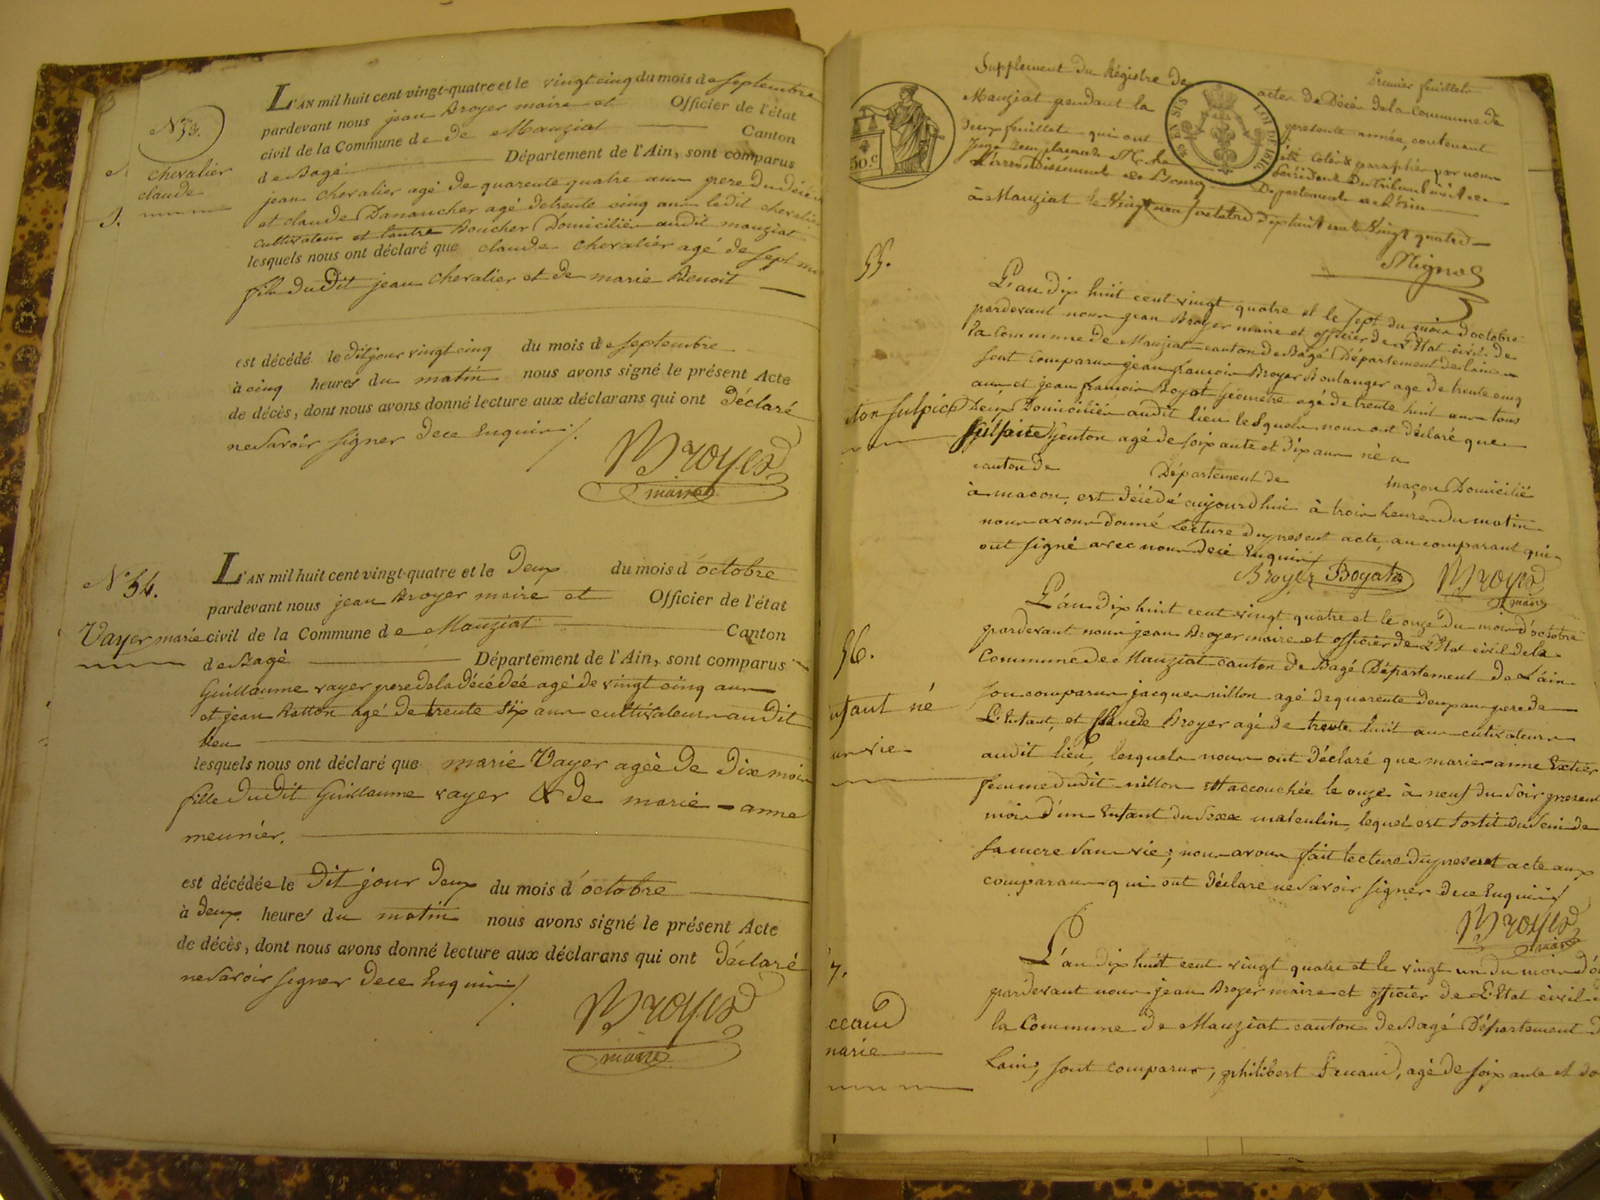 N° 53.
chevalier
claude
L'AN mil huit cent vingt-quatre et le vingt cinq du mois de septembre
pardevant nous jean Broyer maire et Officier de l'état
civil de la Commune de de Mauziat Canton
de Bagé Département de l'Ain, sont comparus
jean chevalier agé de quarente quatre ans pere du décédé
et claude Danancher agé de trente cinq ans ledit chevalier
cultivateur et l'autre Boucher Domiciliés audit mauziat
lesquels nous ont déclaré que claude chevalier agé de sept
fils dudit jean chevalier et de marie Benoit
est décédé le dit jour vingt cinq du mois de septembre
à cinq heures du matin nous avons signé le présent Acte
de décès, dont nous avons donné lecture aux déclarans qui ont déclaré
ne savoir signer de ce Enquis
Broyer
maire
N° 54.
Vayer marie
L'AN mil huit cent vingt-quatre et le Deux du mois d'octobre
pardevant nous jean Broyer maire et Officier de l'état
civil de la Commune de Mauziat Canton
de Bagé Département de l'Ain, sont comparus
Guillaume vayer pere de la décédée agé de vingt cinq ans
et jean Ratton agé de trente six ans cultivateurs audit
lieu
lesquels nous ont déclaré que marie Vayer agée de Dix mois
fille dudit Guillaume vayer & de marie-anne
meunier.
est décédée le dit jour deux du mois d'octobre
à deux heures du matin nous avons signé le présent Acte
de décès, dont nous avons donné lecture aux déclarans qui ont déclaré
ne savoir signer de ce Enquis
Broyer
maire
Supplement du Régistre de
Premier feuillet
acte de Décès de la Commune de
Mauziat pendant la
présente année, contenant
Deux feuillet qui ont
été Coté & paraphé par nous
Président du tribunal civil de
L'arrondissement de Bourg
Département de l'ain
à Mauziat le Vingt neuf octobre dix huit cent Vingt quatre
50.c
LOI DE 1816
55.
ton sulpice
L'an dix huit cent vingt quatre et le sept du mois d'octobre
pardevant nous jean Broyer maire et officier de l'Etat civil de
la Commune de Mauziat canton de Bagé Département de lain
sont comparus jean francois Broyer Boulanger agé de trente cinq
ans et jean francois Boyat Géometre agé de trente huit ans tous
deux Domiciliés audit lieu lesquels nous ont déclaré que
agé de soixante et dix ans né a
canton de Département de maçon Domicilié
à macon, est décédé aujourd'hui à trois heures du matin
nous avons donné Lecture du present acte au comparant qui
ont signé avec nous de ce Enquis
Broyer Boyat Broyer
maire
56.
enfant né
san vie
L'an dix huit cent vingt quatre et le onze du mois d'octobre
pardevant nous jean Broyer maire et officier de l'Etat civil de la
Commune de Mauziat canton de Bagé Département de L'ain
son comparus jacque nillon agé de quarente deux ans pere de
L'Enfant, et Claude Broyer agé de trente huit ans cultivateurs
audit lieu, lesquels nous ont déclaré que marie anne
femme dudit nillon est accouchée le onze à neuf du soir present
mois d'un Enfant du Sexe masculin, lequel est sortit du sein de
sa mere sans vie; nous avons fait lecture du present acte aux
comparans qui ont déclaré ne savoir signer de ce Enquis
Broyer
maire
7.
ceaud
marie
L'an dix huit cent vingt quatre et le vingt un du mois d'o
pardevant nous jean Broyer maire et officier de l'Etat civil
la Commune de Mauziat canton de Bagé Département d
Lain, sont comparus, philibert agé de soixante et do